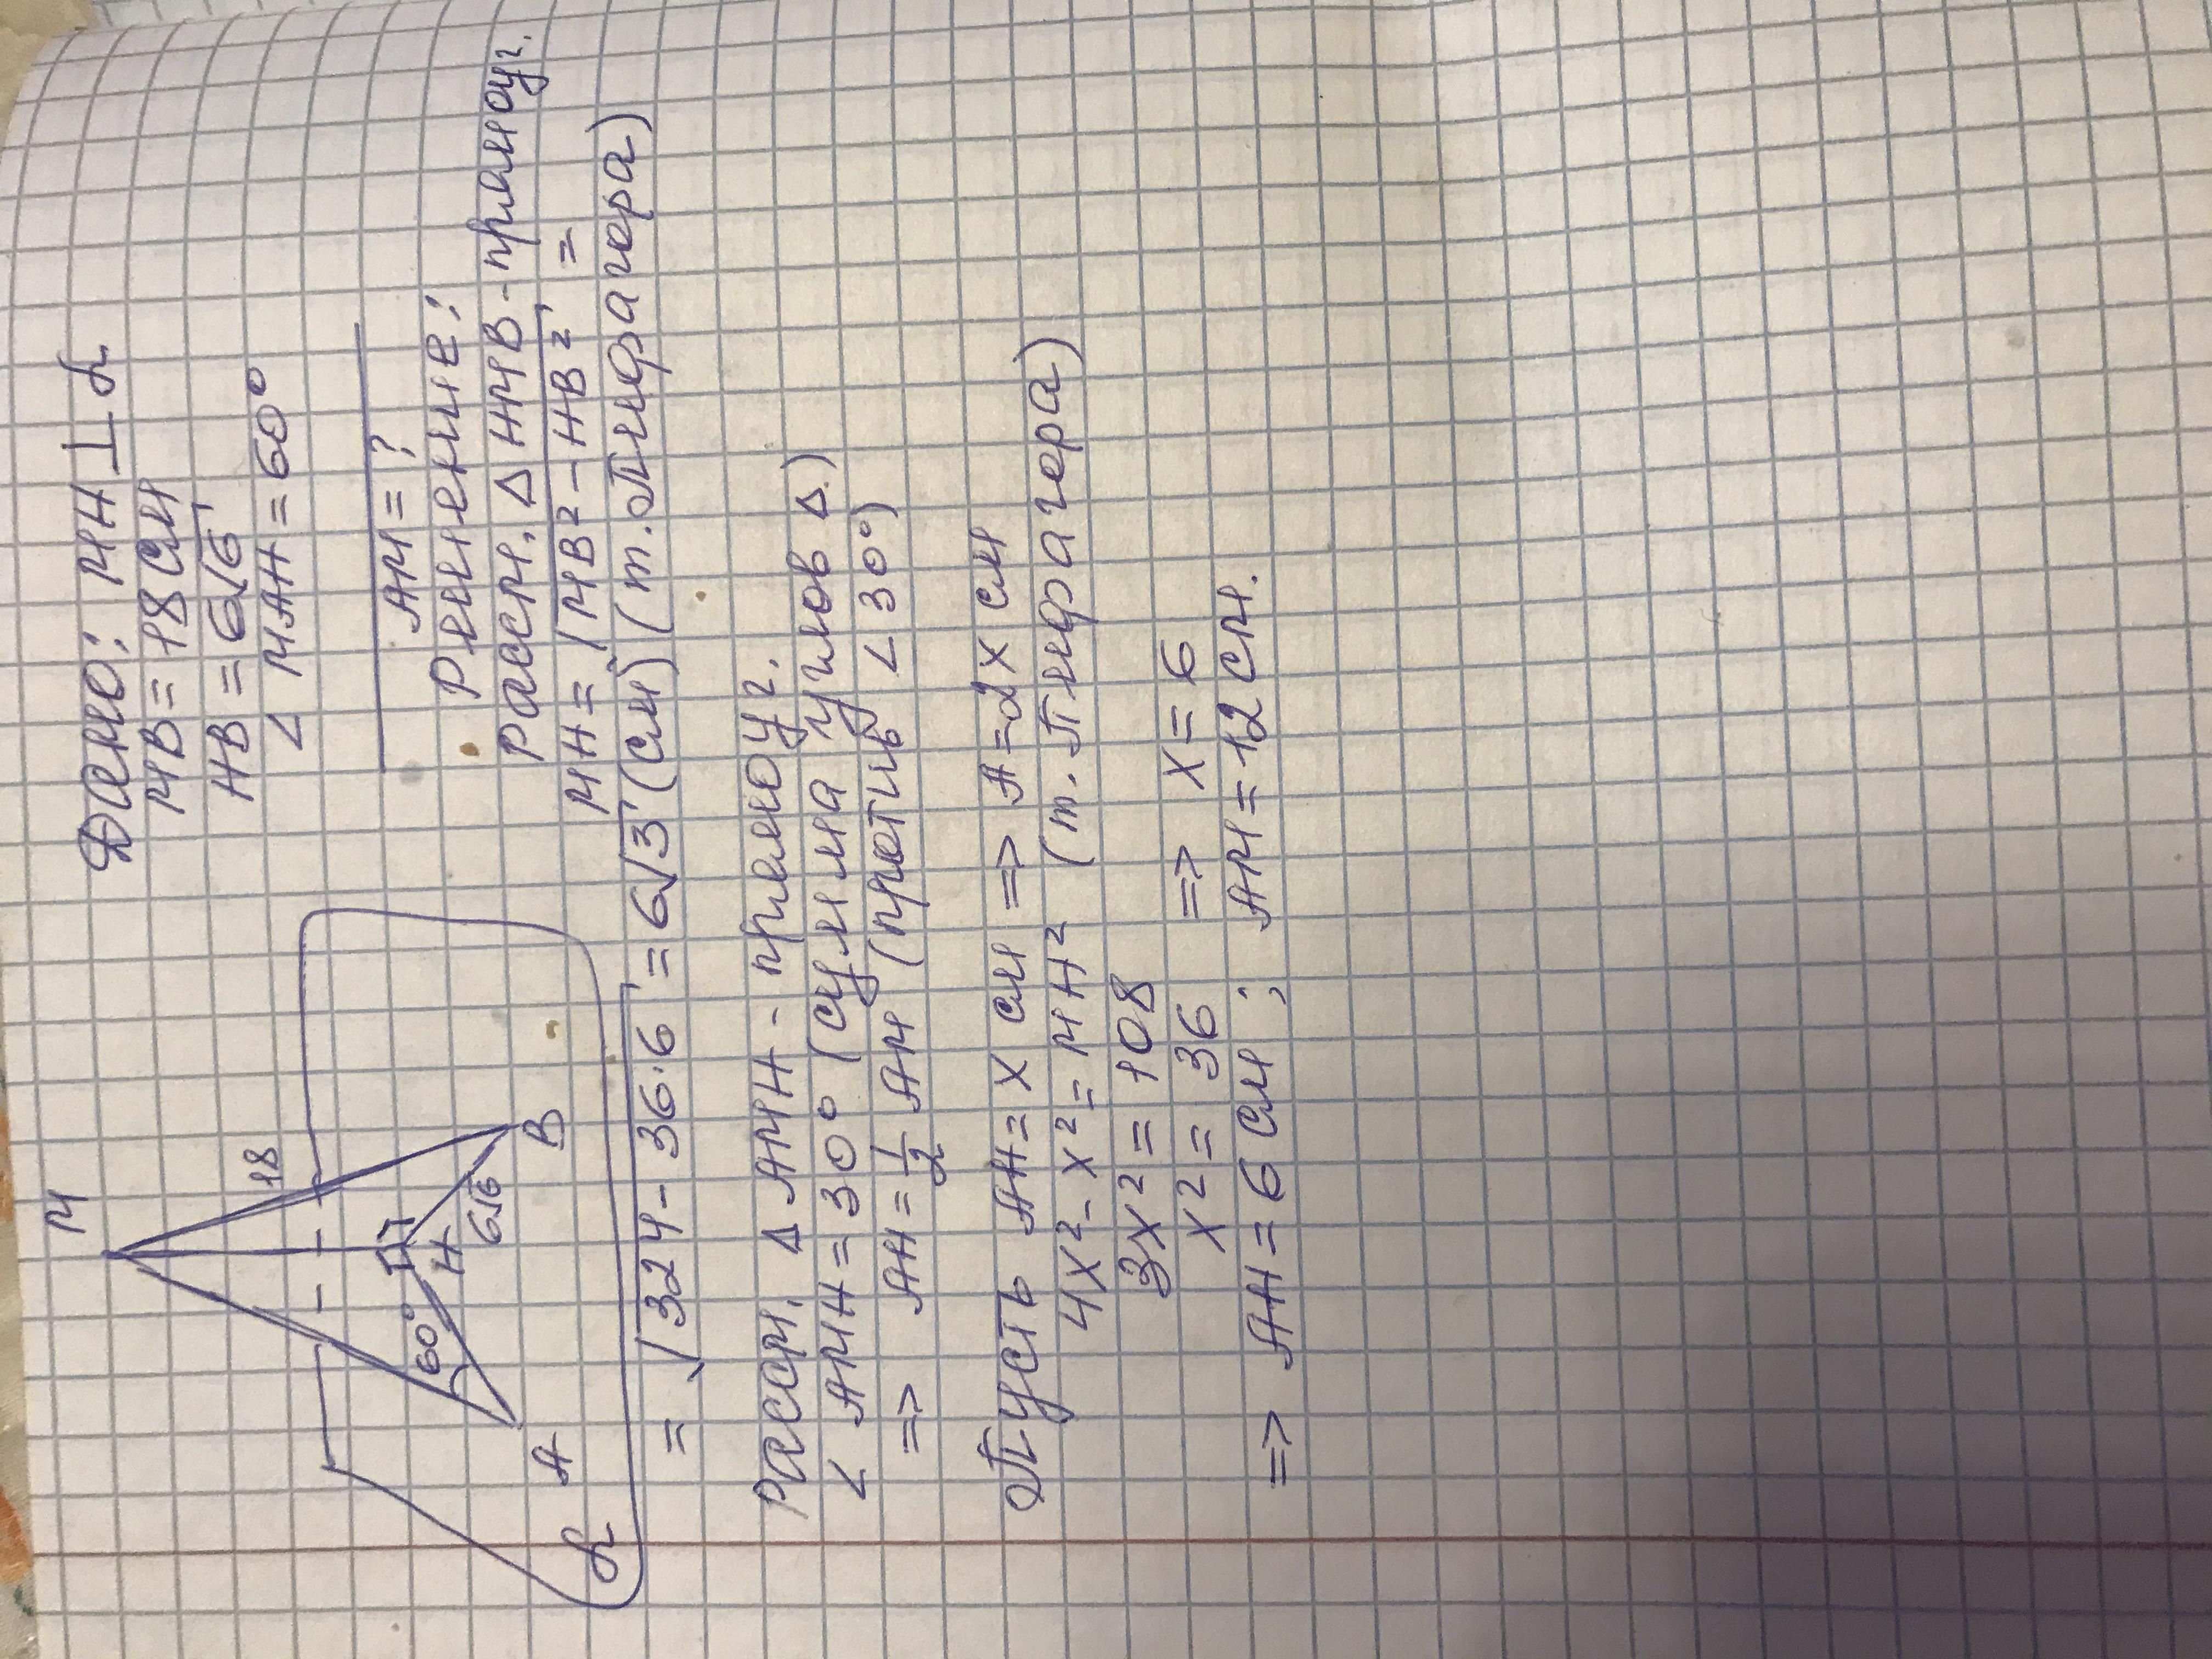 М
18
60°
H
6√6
A
B
α
Дано: MH ⊥ α
MB = 18 см
HB = 6√6
∠ MAH = 60°
AM = ?
Решение:
Рассм. Δ HMB - прямоуг.
MH = √MB² - HB² =
= √324 - 36·6 = 6√3 (см) (т. Пифагера)
Рассм. Δ AMH - прямоуг.
∠ AMH = 30° (сумма углов Δ)
=> AH = 1/2 AM (против ∠ 30°)
Пусть AH = x см => A = 2x см
4x² - x² = MH² (т. Пифагера)
3x² = 108
x² = 36 => x = 6
=> AH = 6 см ; AM = 12 см.